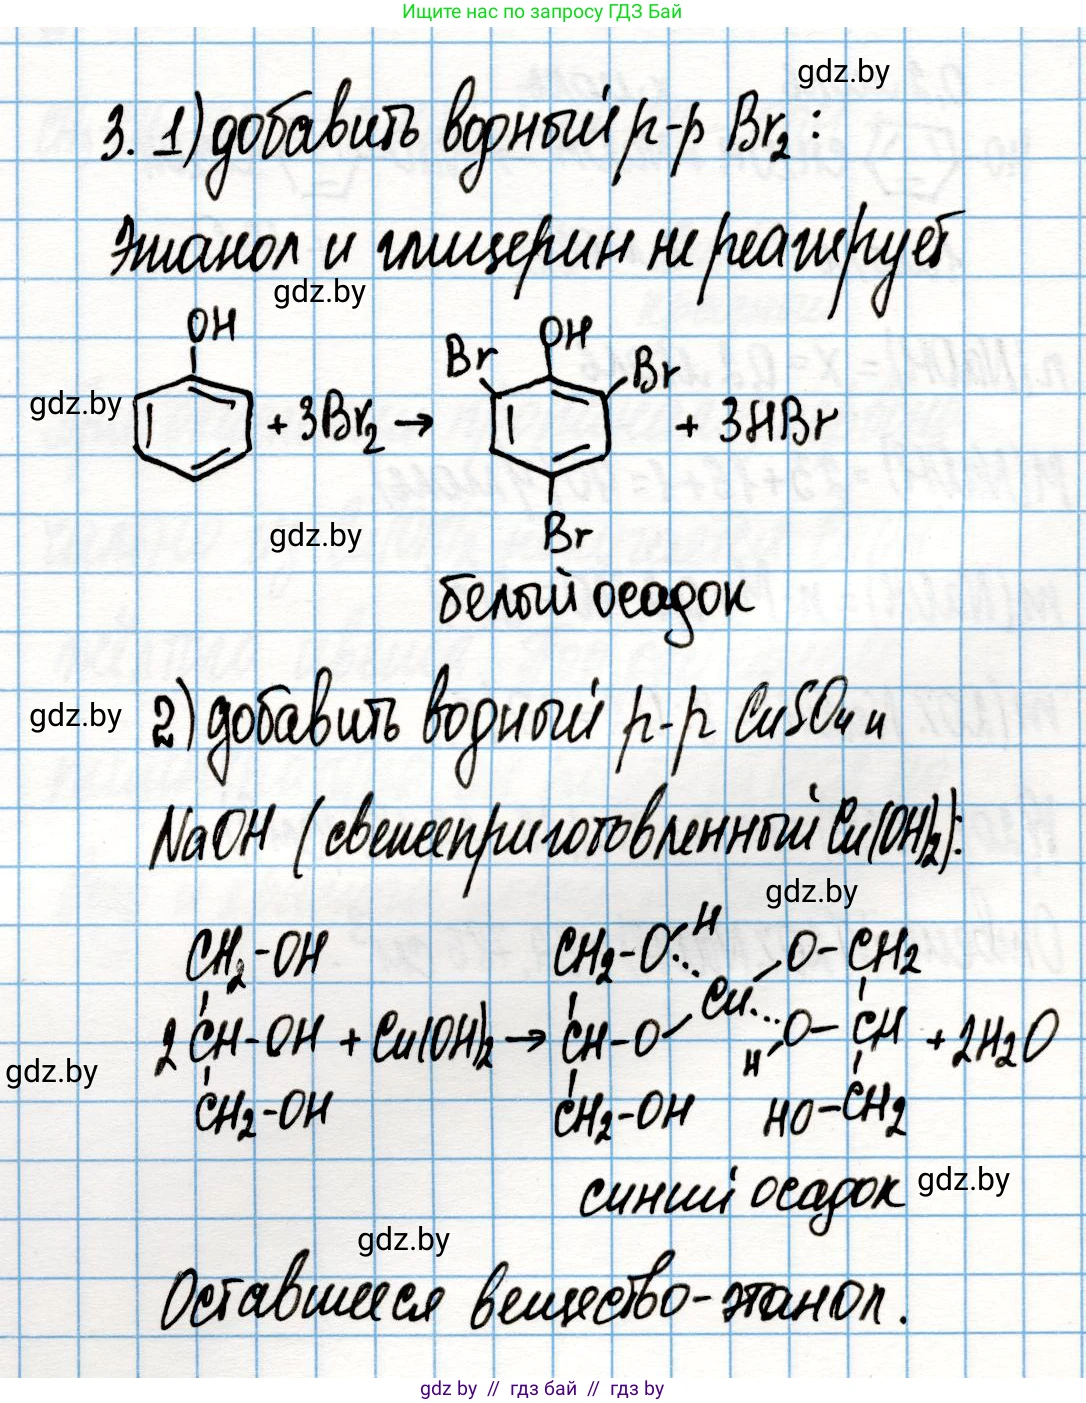 Ищите нас по запросу ГДЗ Бай
gdz.by
3. 1) добавить водный р-р Br₂:
Этанол и глицерин не реагирует
gdz.by
OH
gdz.by
+ 3Br₂ →
Br OH Br
+ 3HBr
Br
gdz.by
белый осадок
gdz.by
2) добавить водный р-р CuSO₄ и
NaOH (свежеприготовленный Cu(OH)₂):
gdz.by
CH₂-OH CH₂-O H O-CH₂
2 CH-OH + Cu(OH)₂ → CH-O Cu O-CH + 2H₂O
H
gdz.by
CH₂-OH CH₂-OH HO-CH₂
синий осадок
gdz.by
gdz.by
Оставшееся вещество-этанол.
gdz by // гдз бай // gdz by